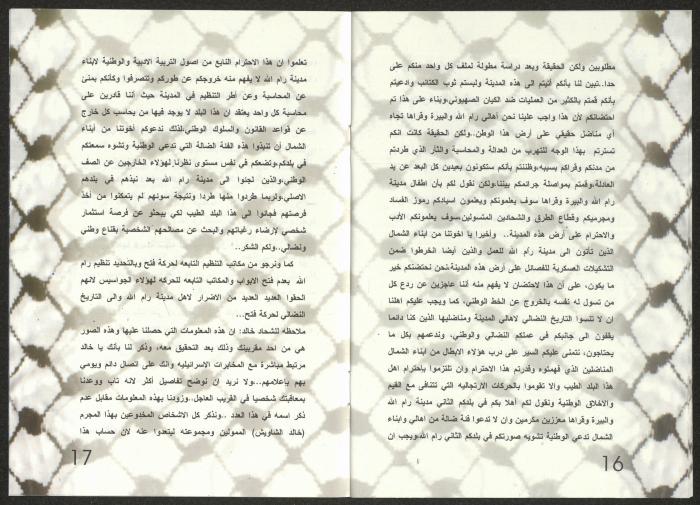 مطلوبين ولكن الحقيقة وبعد دراسة مطولة لملف كل واحد منكم على
حدا..تبين لنا بأنكم أتيتم الى هذه المدينة ولبستم ثوب الكتائب وادعيتم
بأنكم قمتم بالكثير من العمليات ضد الكيان الصهيوني،وبناء على هذا تم
احتضانكم لأن هذا واجب علينا نحن أهالي رام الله والبيرة وقراها تجاه
أي مناضل حقيقي على أرض هذا الوطن..ولكن الحقيقة كانت انكم
تسترتم بهذا الوجه للتهرب من العدالة والمحاسبة والثأر الذي طردتم
من مدنكم وقراكم بسببه،وظننتم بأنكم ستكونون بعيدين كل البعد عن يد
العادلة،وقمتم بمواصلة جرائمكم بيننا،ولكن نقول لكم بأن اطفال مدينة
رام الله والبيرة وقراها سوف يعلمونكم ويعلمون اسيادكم رموز الفساد
ومجرميكم وقطاع الطرق والشحادين المتسولين،سوف يعلمونكم الأدب
والاحترام على أرض هذه المدينة.. وأخيرا يا اخوتنا من ابناء الشمال
الذين تأتون الى مدينة رام الله للعمل والذين أيضا انخرطوا ضمن
التشكيلات العسكرية للفصائل على أرض هذه المدينة،نحن نحتضنكم خير
ما يكون، على أن هذا لاحتضان لا يفهم منه أننا عاجزين عن ردع كل
من تسول له نفسه بالخروج عن الخط الوطني، كما ويجب عليكم اهلنا
ان لا تنسوا التاريخ النضالي لاهالي المدينة ومناضليها الذين كنا دائما
يقفون الى جانبكم في عملكم النضالي والوطني، وندعمهم بكل ما
يحتاجون، نتمنى عليكم السير على درب هؤلاء الابطال من ابناء الشمال
المناضلين الذي فهموه وقدرتم هذا الاحترام وان تلتزموا باحترام اهل
هذا البلد الطيب ولا تقوموا بالحركات الارتجاليه التي تتنافى مع القيم
والاخلاق الوطنية ونقول لكم أهلا بكم في بلدكم الثاني مدينة رام الله
والبيرة وقراها معززين مكرمين وان لا تدعوا فئة ضالة من اهالي وابناء
الشمال تدعي الوطنية تشويه صورتكم في بلدكم الثاني رام الله،ويجب ان
16
تعلموا ان هذا الاحترام النابع من اصول التربية الادبية والوطنية لابناء
مدينة رام الله لا يفهم منه خروجكم عن طوركم وتتصرفوا وكأنكم بمنئ
عن المحاسبة وعن أطر التنظيم في المدينة حيث أننا قادرين على
محاسبة كل واحد يعتقد ان هذا البلد لا يوجد فيها من يحاسب كل خارج
عن قواعد القانون والسلوك الوطني،لذلك ندعوكم أخوتنا من أبناء
الشمال أن تنبذوا هذه الفئة الضالة التي تدعي الوطنية وتشوه سمعتكم
في بلدكم،وتضعكم في نفس مستوى نظرتنا لهؤلاء الخارجين عن الصف
الوطني،والذين لجئوا الى مدينة رام الله بعد نبذهم في بلدهم
الاصلي،ولربما طردوا منها طردا ونتيجة سوئهم لم يتمكنوا من أخذ
فرصتهم فجائوا الى هذا البلد الطيب لكي يبحثو عن فرصة استثمار
شخصي لإرضاء رغباتهم والبحث عن مصالحهم الشخصية بقناع وطني
ونضالي..ولكم الشكر..
كما ونرجو من مكاتب التنظيم التابعه لحركة فتح وبالتحديد تنظيم رام
الله بعدم فتح الابواب والمكاتب التابعه للحركه لهؤلاء الجواسيس لانهم
الحقوا العديد العديد من الاضرار لاهل مدينة رام الله والى التاريخ
النضالي لحركة فتح...
ملاحظه للشحاد خالد: ان هذه المعلومات التي حصلنا عليها وهذه الصور
هي من احد مقربينك وذلك بعد التحقيق معه، وذكر لنا بأنك يا خالد
مرتبط مباشرة مع المخابرات الاسرائيليه وانك على اتصال دائم ويومي
بهم باعلامهم...ولا نريد ان نوضح تفاصيل أكثر لانه تاب ووعدنا
بمعاقبتك شخصيا في القريب العاجل..وزودنا بهذه المعلومات مقابل عدم
ذكر اسمه في هذا العدد ..ونذكر كل الاشخاص المخدوعين بهذا المجرم
(خالد الشاويش) الممولين ومجموعته ليتعدوا عنه لان حساب هذا
17